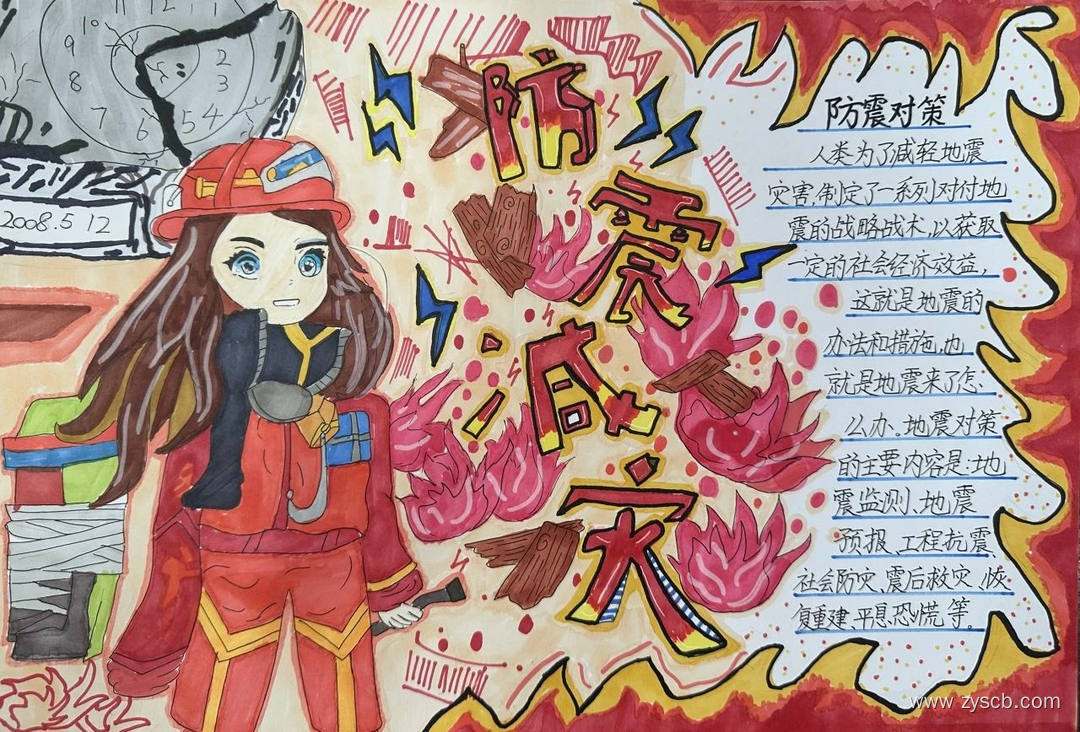 10
9
8
7
6
5 4
3
2
2008.5 12
防
震
减
灾
防震对策
人类为了减轻地震
灾害,制定了一系列对付地
震的战略战术,以获取
一定的社会经济效益,
这就是地震的
办法和措施,也
就是地震来了怎
么办。地震对策
的主要内容是:地
震监测、地震
预报、工程抗震、
社会防灾、震后救灾、恢
复重建、平息恐慌等。
www.zyscb.com